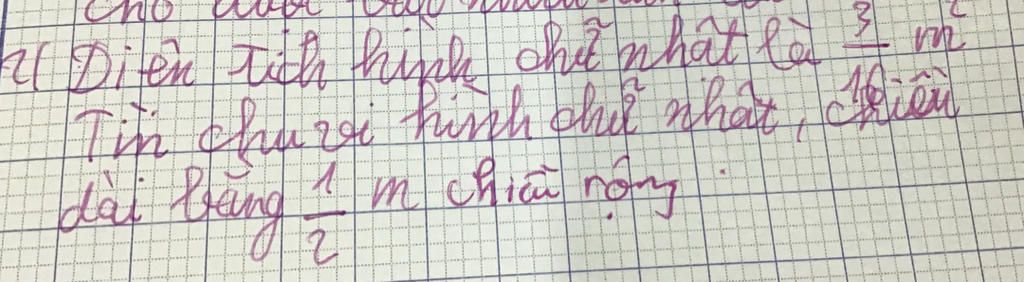 cho
2( Diện tích hình chữ nhật là 3/16 m²
Tín chu vi hình chữ nhật, chiều
dài bằng 1/2 m chiều rộng.